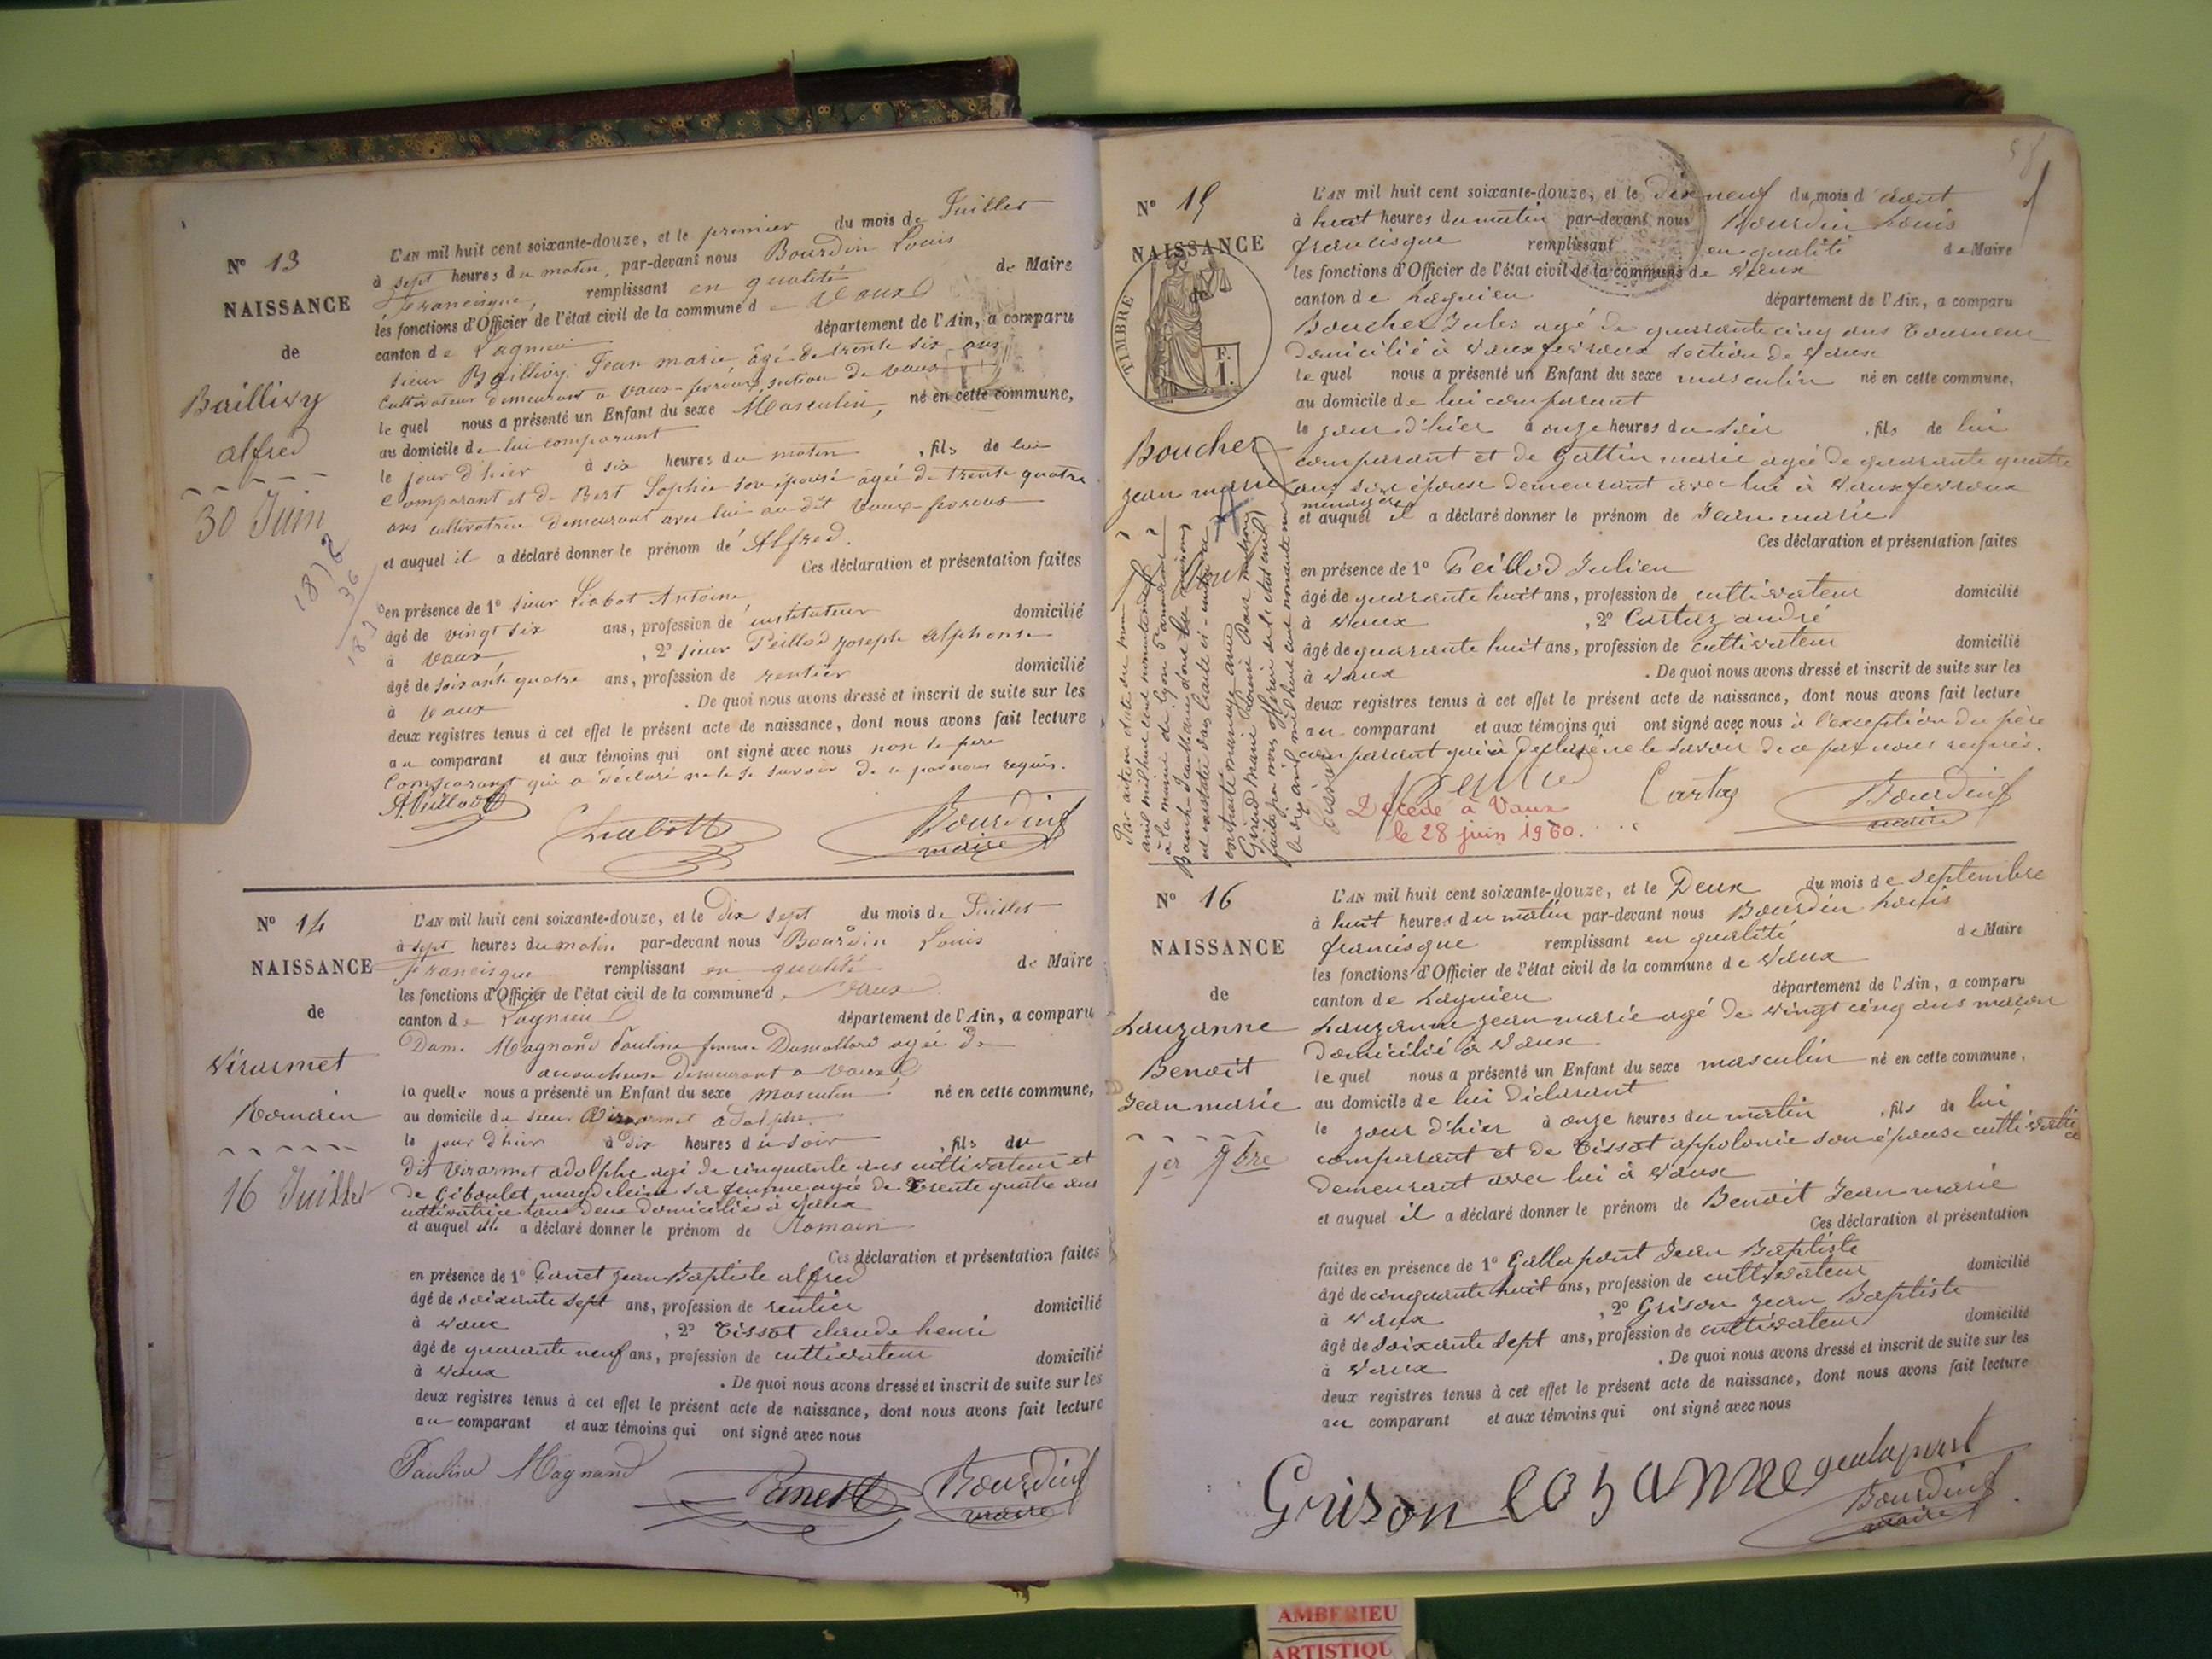 N° 13
NAISSANCE
de
Baillivy
alfred
30 Juin
1872
L'AN mil huit cent soixante-douze, et le premier du mois de Juillet
à sept heures du matin, par-devant nous Bourdin Louis
francisque, remplissant en qualité de Maire
les fonctions d'Officier de l'état civil de la commune de Vaux
canton de Lagnieu département de l'Ain, a comparu
sieur Baillivy Jean marie, âgé de trente six ans
Cultivateur demeurant a vaux-fevroux, section de vaux
le quel nous a présenté un Enfant du sexe Masculin, né en cette commune,
au domicile de lui comparant
le jour d'hier à six heures du matin, fils de lui
Comparant et de Bert Sophie son épouse âgée de trente quatre
ans cultivatrice demeurant avec lui au dit Vaux-fevroux
et auquel il a déclaré donner le prénom de Alfred.
Ces déclaration et présentation faites
en présence de 1° sieur Liabot Antoine,
âgé de vingt six ans, profession de instituteur domicilié
à vaux, 2° sieur Peillod joseph alphonse
âgé de soixante quatre ans, profession de rentier domicilié
à vaux. De quoi nous avons dressé et inscrit de suite sur les
deux registres tenus à cet effet le présent acte de naissance, dont nous avons fait lecture
au comparant et aux témoins qui ont signé avec nous non le père
Comparant qui a déclaré ne le savoir de ce par nous requis.
A. Peillod Liabot Bourdin
maire
N° 14
NAISSANCE
de
Virarmet
Romain
16 Juillet
L'AN mil huit cent soixante-douze, et le Dix sept du mois de Juillet
à sept heures du matin par-devant nous Bourdin Louis
francisque remplissant en qualité de Maire
les fonctions d'Officier de l'état civil de la commune de Vaux
canton de Lagnieu département de l'Ain, a comparu
Dame Magnand Pauline femme Dumollard agée de
accoucheuse demeurant a vaux
la quelle nous a présenté un Enfant du sexe masculin né en cette commune,
au domicile du sieur Virarmet adolphe
le jour d'hier à dix heures du soir, fils du
dit Virarmet adolphe agé de cinquante ans cultivateur et
de Giboulet magdeleine sa femme agée de trente quatre ans
cultivatrice tous deux domiciliés à Vaux
et auquel elle a déclaré donner le prénom de Romain
Ces déclaration et présentation faites
en présence de 1° Panet jean Baptiste alfred
âgé de soixante sept ans, profession de rentier domicilié
à vaux, 2° Tissot claude henri
âgé de quarante neuf ans, profession de cultivateur domicilié
à vaux. De quoi nous avons dressé et inscrit de suite sur les
deux registres tenus à cet effet le présent acte de naissance, dont nous avons fait lecture
au comparant et aux témoins qui ont signé avec nous
Pauline Magnand Panet Bourdin
maire
N° 15
NAISSANCE
de
TIMBRE
F.
I.
Boucher
jean marie
L'AN mil huit cent soixante-douze, et le dixneuf du mois d'aout
à huit heures du matin par-devant nous Bourdin Louis
francisque remplissant en qualité de Maire
les fonctions d'Officier de l'état civil de la commune de Vaux
canton de Lagnieu département de l'Ain, a comparu
Boucher Jules agé de quarante cinq ans tourneur
domicilié à vaux fevroux section de vaux
le quel nous a présenté un Enfant du sexe masculin né en cette commune,
au domicile de lui comparant
le jour d'hier à onze heures du soir, fils de lui
comparant et de Guttin marie agée de quarante quatre
ans son épouse demeurant avec lui à vaux fevroux
ménagère
et auquel il a déclaré donner le prénom de Jean marie
Ces déclaration et présentation faites
en présence de 1° Peillod Julien
âgé de quarante huit ans, profession de cultivateur domicilié
à vaux, 2° Cartaz andré
âgé de quarante huit ans, profession de cultivateur domicilié
à vaux. De quoi nous avons dressé et inscrit de suite sur les
deux registres tenus à cet effet le présent acte de naissance, dont nous avons fait lecture
au comparant et aux témoins qui ont signé avec nous à l'exception du père
comparant qui a déclaré ne le savoir de ce par nous requis.
Cartaz Bourdin
maire
Décédé à Vaux
le 28 juin 1960.
N° 16
NAISSANCE
de
Lauzanne
Benoit
Jean marie
1er 7bre
L'AN mil huit cent soixante-douze, et le Deux du mois de septembre
à huit heures du matin par-devant nous Bourdin Louis
francisque remplissant en qualité de Maire
les fonctions d'Officier de l'état civil de la commune de Vaux
canton de Lagnieu département de l'Ain, a comparu
Lauzanne jean marie agé de vingt cinq ans maçon
domicilié à vaux
le quel nous a présenté un Enfant du sexe masculin né en cette commune,
au domicile de lui déclarant
le jour d'hier à onze heures du matin, fils de lui
comparant et de Tissot appolonie son épouse cultivatrice
demeurant avec lui à vaux
et auquel il a déclaré donner le prénom de Benoit Jean marie
Ces déclaration et présentation
faites en présence de 1° Gallapont Jean Baptiste
âgé de cinquante huit ans, profession de cultivateur domicilié
à vaux, 2° Grison jean Baptiste
âgé de soixante sept ans, profession de cultivateur domicilié
à vaux. De quoi nous avons dressé et inscrit de suite sur les
deux registres tenus à cet effet le présent acte de naissance, dont nous avons fait lecture
au comparant et aux témoins qui ont signé avec nous
Grison Losanne Bourdin
maire
AMBERIEU
ARTISTIQU